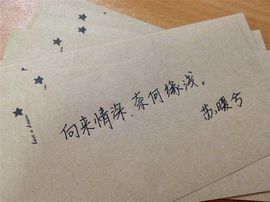 向来情深,奈何缘浅。
苏暖兮